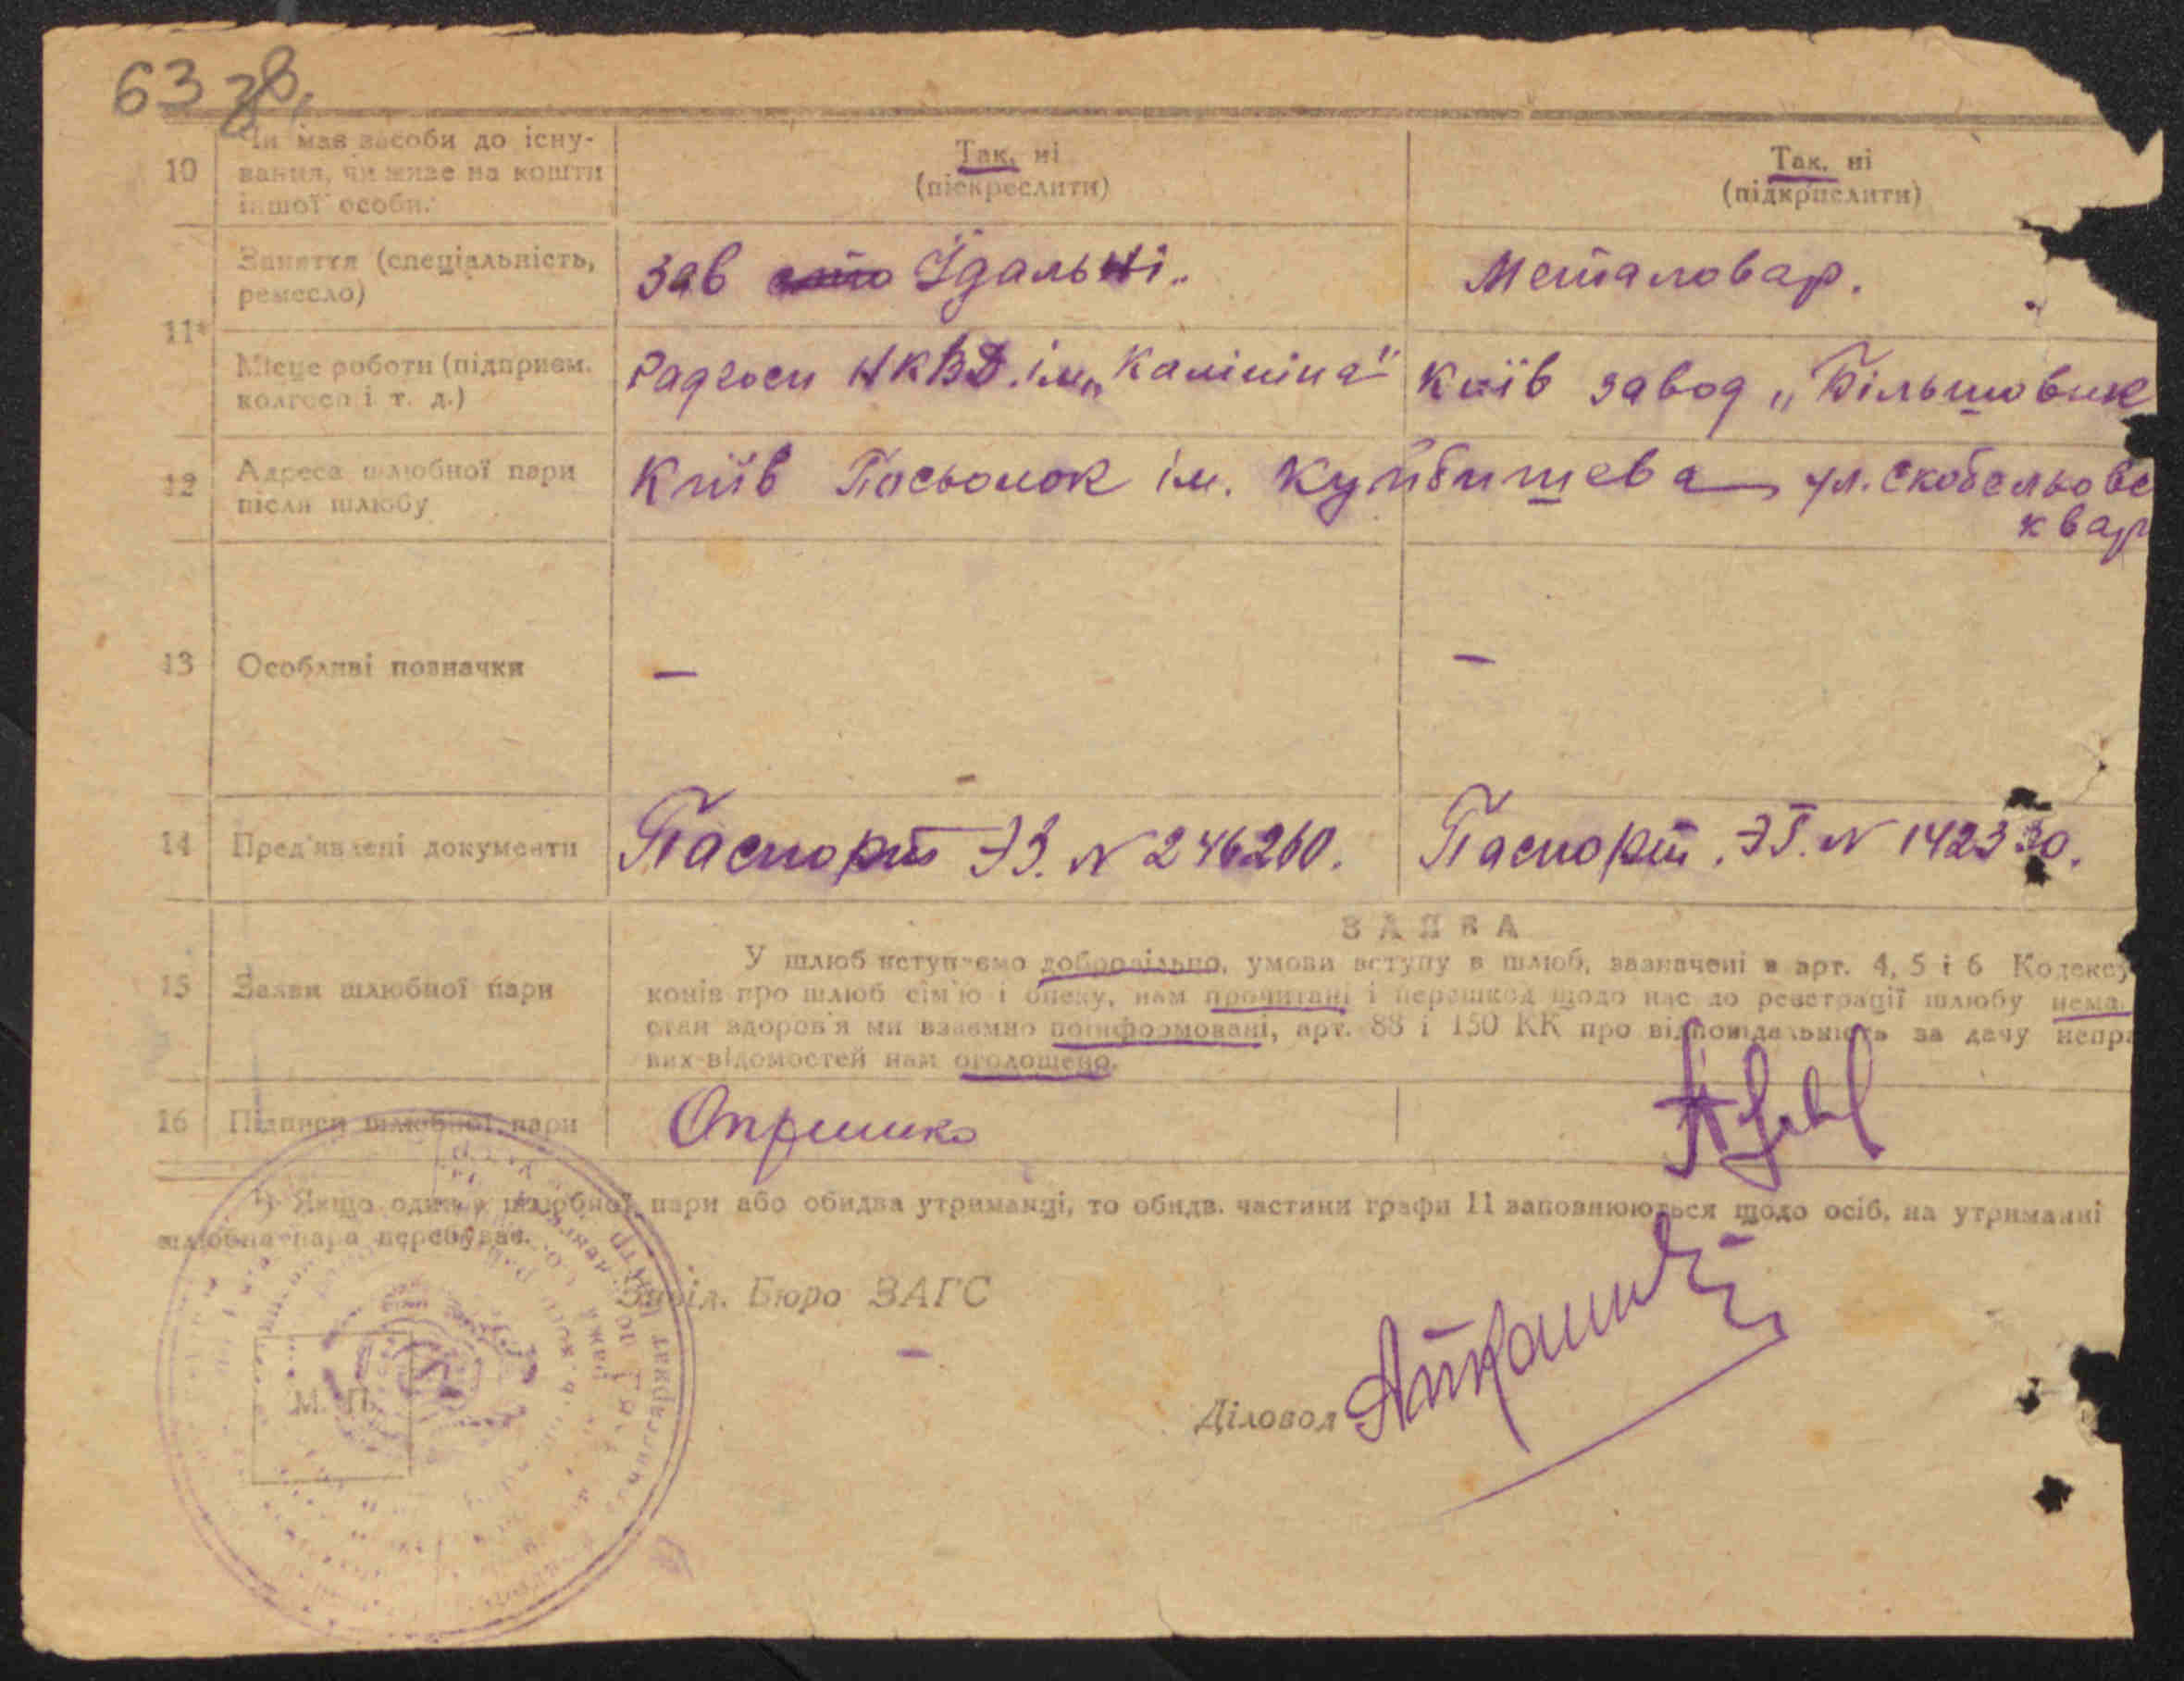 63 зв.
10 Чи має засоби до існу-
вання, чи живе на кошти
іншої особи.
Так, ні
(піскреслити)
Так, ні
(підкрислити)
11
Заняття (спеціальність,
ремесло)
Зав Їдальні.
Металовар.
Місце роботи (підприєм.
колгосп і т. д.)
Радгосп НКВД. ім. „Калініна"
Київ завод „Більшовик
12 Адреса шлюбної пари
після шлюбу
Київ Посьолок ім. Куйбишева ул. Скобельовс
квар
13 Особливі позначки
–
–
14 Пред'явлені документи
Паспорт N 246260.
Паспорт. N 142330.
ЗАЯВА
15 Заяви шлюбної пари
У шлюб вступаємо добровільно, умови вступу в шлюб, зазначені в арт. 4, 5 і 6 Кодексу
конів про шлюб сім'ю і опеку, нам прочитані і перешкод щодо нас до реєстрації шлюбу нема.
стан здоров'я ми взаємно поінформовані, арт. 88 і 150 КК про відповідальність за дачу непра
вих відомостей нам оголошено.
16 Підписи шлюбної пари
Опришко
¹) Якщо один з шлюбної пари або обидва утриманці, то обидв. частини графи 11 заповнюються щодо осіб, на утриманні
шлюбна пара перебуває.
Завіл. Бюро ЗАГС
–
М. П.
Діловод